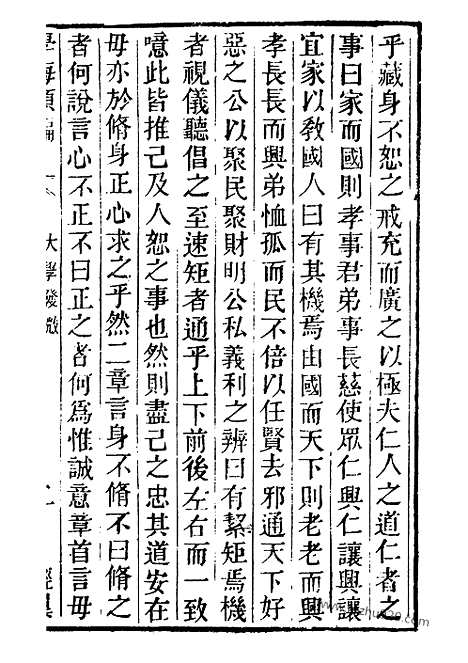 乎藏身不恕之戒充而廣之以極夫仁人之道仁者之
事曰家而國則孝事君弟事長慈使眾仁興仁讓興讓
宜家以敎國人曰有其機焉由國而天下則老老而興
孝長長而興弟恤孤而民不倍以任賢去邪通天下好
惡之公以聚民聚財明公私義利之辨曰有絜矩焉機
者視儀聽倡之至速矩者通乎上下前後左右而一致
噫此皆推己及人恕之事也然則盡己之忠其道安在
毋亦於脩身正心求之乎然二章言身不脩不曰脩之
者何說言心不正不曰正之者何爲惟誠意章首言毋
學海類編
大學發微